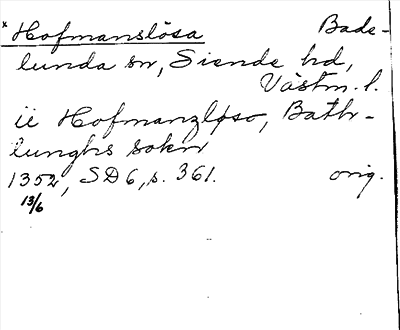 * Hofmanslösa Bade-
lunda sn, Siende hd,
Västm. l.
ii Hofmanzløso, Bathr-
lunghs sokn
1352, SD 6, s. 361. orig.
13/6